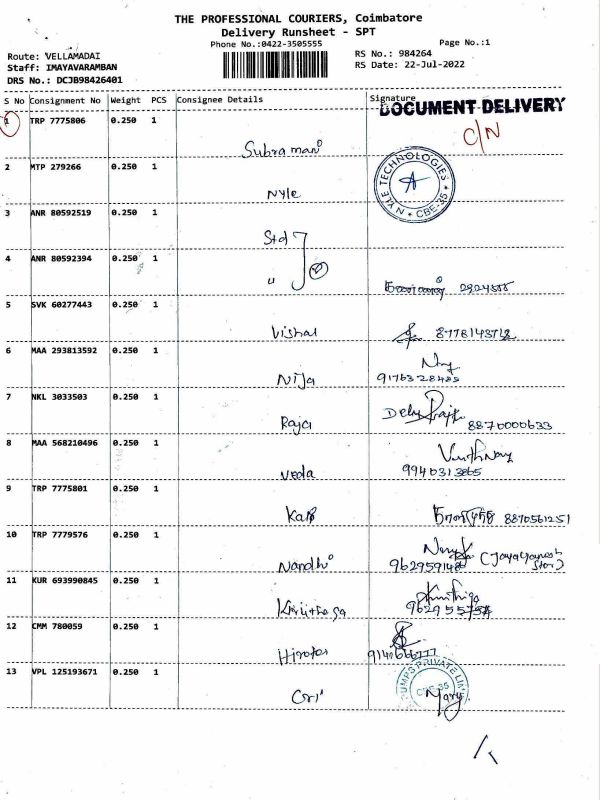 THE PROFESSIONAL COURIERS, Coimbatore
Delivery Runsheet - SPT
Phone No.:0422-3505555
Page No.:1
Route: VELLAMADAI
RS No.: 984264
Staff: IMAYAVARAMBAN
RS Date: 22-Jul-2022
DRS No.: DCJB98426401
S No Consignment No Weight PCS Consignee Details Signature
DOCUMENT DELIVERY
1 TRP 7775806 0.250 1
C/N
Subramani
2 MTP 279266 0.250 1
NYLE TECHNOLOGIES * CBE-35 *
Nyle
3 ANR 80592519 0.250 1
Std
4 ANR 80592394 0.250 1
"
5 SVK 60277443 0.250 1
Vishal 8778143712
6 MAA 293813592 0.250 1
Nija
7 NKL 3033503 0.250 1
Raja 8870000633
8 MAA 568210496 0.250 1
Veda 9940313865
9 TRP 7775801 0.250 1
8870561251
10 TRP 7779576 0.250 1
Nandhi
11 KUR 693990845 0.250 1
12 CMM 780059 0.250 1
13 VPL 125193671 0.250 1
PUMPS PRIVATE LIM
CBE-35
Mary